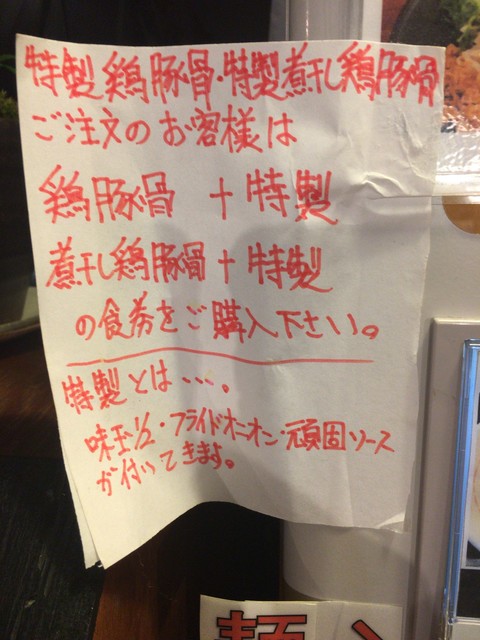 特製鶏豚骨・特製煮干し鶏豚骨
ご注文のお客様は
鶏豚骨 + 特製
煮干し鶏豚骨 + 特製
の食券をご購入下さい。
特製とは・・・。
味玉1/2・フライドオニオン・頑固ソース
が付いてきます。
麺